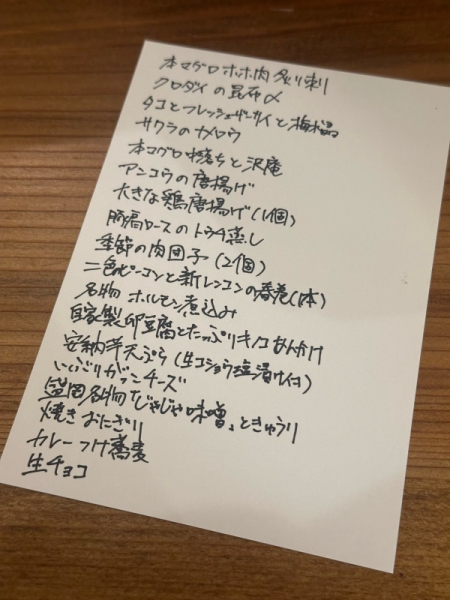 本マグロホホ肉炙り刺
クロダイの昆布〆
タコとフレッシュザーサイと梅水晶
サワラのカメロウ
本マグロ中落ちと沢庵
アンコウの唐揚げ
大きな鶏唐揚げ(1個)
豚肩ロースのトウチ蒸し
季節の肉団子(2個)
二色ピーマンと新レンコンの春巻(1本)
名物 ホルモン煮込み
自家製卵豆腐とたっぷりキノコあんかけ
安納芋天ぷら(生コショウ塩漬け付)
いぶりがっこチーズ
盛岡名物「じゃじゃ味噌」ときゅうり
焼きおにぎり
カレーつけ蕎麦
生チョコ